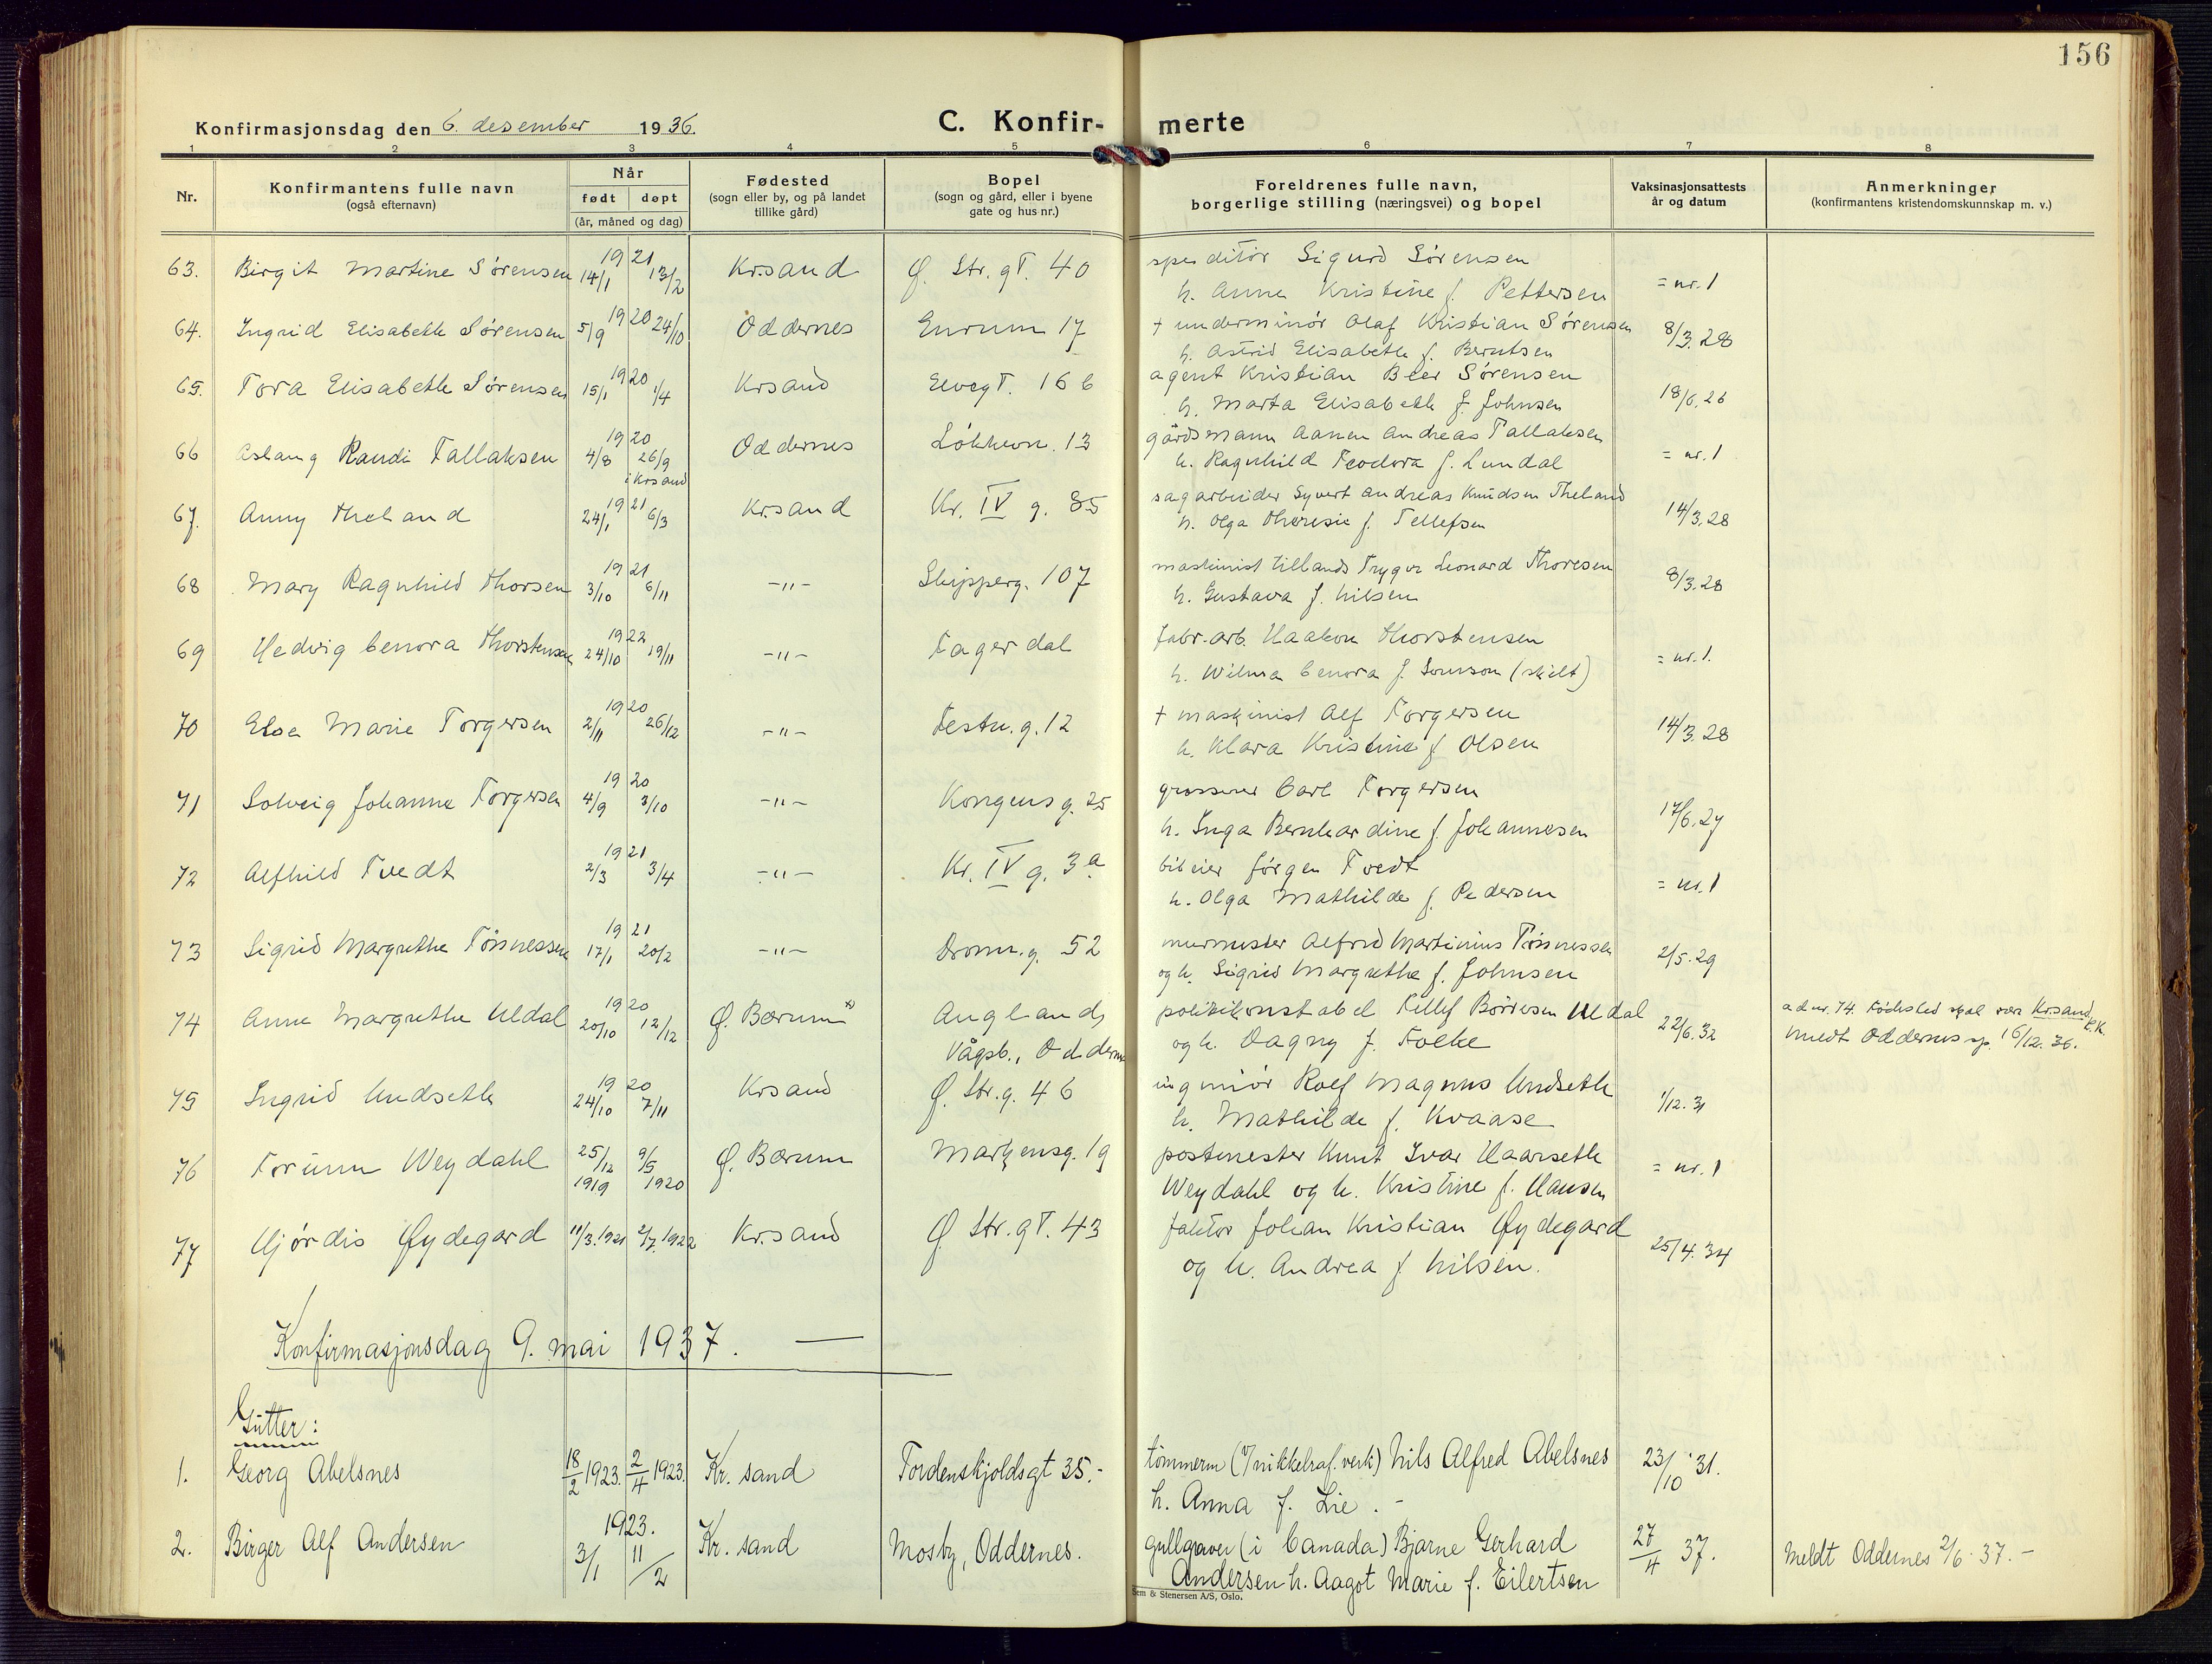 156
Konfirmasjonsdag den 6. desember 1936.
C. Konfir- merte
1 2 3 4 5 6 7 8
Nr.
Konfirmantens fulle navn
(også efternavn)
Når
født døpt
(år, måned og dag)
Fødested
(sogn eller by, og på landet
tillike gård)
Bopel
(sogn og gård, eller i byene
gate og hus nr.)
Foreldrenes fulle navn,
borgerlige stilling (næringsvei) og bopel
Vaksinasjonsattests
år og datum
Anmerkninger
(konfirmantens kristendomskunnskap m. v.)
1921 speditør Sigurd Sørensen
63. Birgit Martine Sørensen 14/1 13/2 Kr.sand Ø. Str. gt. 40 h. Anna Kristine f. Pettersen = nr. 1
1920 + underminør Olaf Kristian Sørensen
64. Ingrid Elisabeth Sørensen 5/9 24/10 Oddernes Enrum 17 h. Astrid Elisabeth f. Berntsen 8/3.28
1920 agent Kristian Beer Sørensen
65. Tora Elisabeth Sørensen 15/1 1/4 Krsand Elvegt. 16 b h. Marta Elisabeth f. Johnsen 18/6.26
1920 gårdsmann Aanen Andreas Tallaksen
66 Aslaug Randi Tallaksen 4/8 26/9 Oddernes Løkkevn. 13 h. Ragnhild Teodora f. Lundal = nr. 1
i Krsand
1921 sagarbeider Syvert Andreas Knudsen Theland
67. Anny Theland 24/1 6/3 Kr.sand Kr. IV g. 85 h. Olga Theresie f. Tellefsen 14/3.28
1921 maskinist tillands Trygve Leonard Thoresen
68 Mary Ragnhild Thorsen 3/10 6/11 -"- Skipperg. 107 h. Gustava f. Nilsen 8/3.28
1922 fabr.-arb. Haakon Thorstensen
69 Hedvig Cenora Thorstensen 24/10 19/11 -"- Fagerdal h. Wilma Cenora f. (skilt) = nr. 1.
1920 + maskinist Alf Torgersen
70 Elsa Marie Torgersen 2/11 26/12 -"- Festn. g. 12 h. Klara Kristine f. Olsen 14/3.28
1920 grosserer Carl Torgersen
71 Solveig Johanne Torgersen 4/9 3/10 -"- Kongens g. 25 h. Inga Bernhardine f. Johannesen 17/6.27
1921 bileier Jørgen Tvedt
72 Alfhild Tvedt 2/3 3/4 -"- Kr. IV g. 3 a h. Olga Mathilde f. Pedersen = nr. 1
1921 murmester Alfred Martinius Tønnessen
73 Sigrid Margrethe Tønnessen 17/1 20/2 -"- Dronn. g. 52 og h. Sigrid Margrethe f. Johnsen 2/5.29
1920 politikonstabel Tellef Børresen Uldal
74 Anne Margrethe Uldal 20/10 12/12 Ø. Bærum x) Augland, og h. Dagny f. Folke 22/6.32 ad nr. 74. Fødested skal være Krsand,
Vågsb., Oddernes meldt Oddernes sp. 16/12. 36.
1920 ingeniør Rolf Magnus Undseth
75 Ingrid Undseth 24/10 7/11 Krsand Ø. Str. g. 46 h. Mathilde f. Kvaase 1/12.31
76 Torunn Weydahl 25/12 1919 9/5 1920 Ø. Bærum Markensg. 19 postmester Knut Ivar Haarseth = nr. 1
Weydahl og h. Kristine f. Hansen
77 Hjørdis Øydegard 11/3.1921 2/7.1922 Kr.sand Ø. Str. gt. 43 faktor Johan Kristian Øydegard 25/4.34
og h. Andrea f. Nilsen.
Konfirmasjonsdag 9. mai 1937.
Gutter:
1. Georg Abelsnes 18/2 1923. 2/4 1923. Kr. sand Tordenskjoldsgt 35.- tømmerm (v/nikkelraf.verk) Nils Alfred Abelsnes 23/10 '31.
h. Anna f. Lie. -
1923.
2. Birger Alf Andersen 3/1 11/2 Kr. sand Mosby, Oddernes. gullgraver (i Canada) Bjarne Gerhard 27/4 37. Meldt Oddernes 2/6 37.-
Andersen h. Aagot Marie f. Eilertsen
Sem & Stenersen A/S, Oslo.